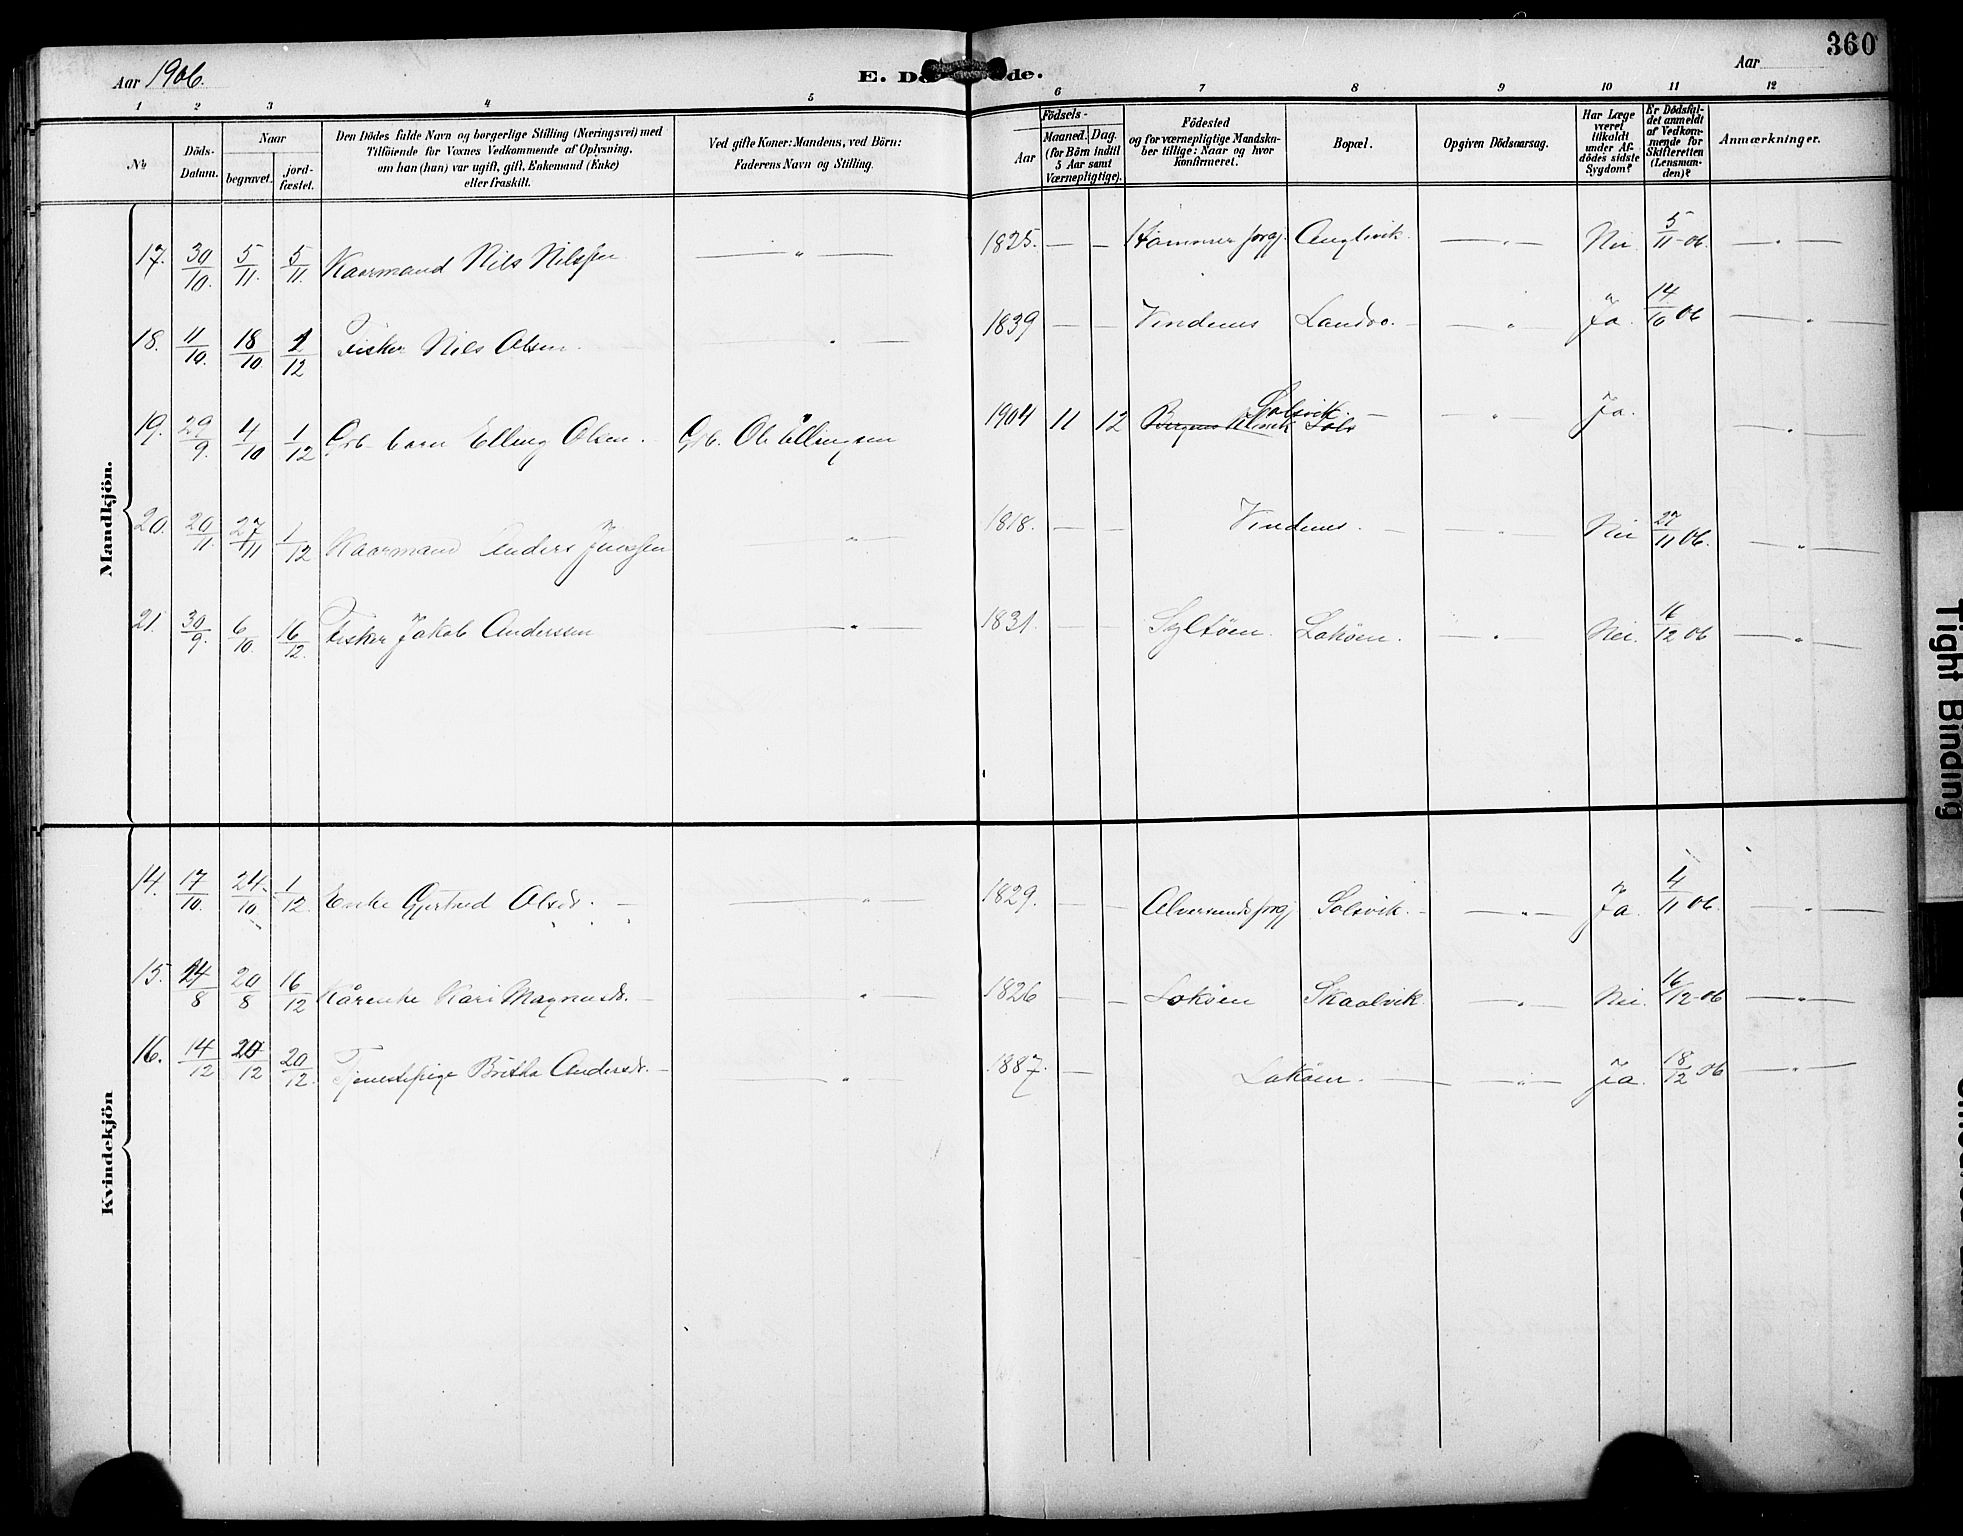 Aar 1906.
E. Dö de.
Aar
360
1 2 3 4 5 6 7 8 9 10 11 12
No
Döds-Datum.
Naar
begravet.
jord-fæstet.
Den Dödes fulde Navn og borgerlige Stilling (Næringsvei) med
Tilföiende for Voxnes Vedkommende af Oplysning,
om han (hun) var ugift, gift, Enkemand (Enke)
eller fraskilt.
Ved gifte Koner: Mandens, ved Börn:
Faderens Navn og Stilling.
Födsels-
Aar
Maaned. Dag.
(for Börn indtil
5 Aar samt
Værnepligtige).
Födested
og for værnepligtige Mandska-
ber tillige: Naar og hvor
konfirmeret.
Bopæl.
Opgiven Dödsaarsag.
Har Læge
været
tilkaldt
under Af-
dödes sidste
Sygdom?
Er Dödsfal-
det anmeldt
af Vedkom-
mende for
Skifteretten
(Lensman-
den)?
Anmærkninger.
Mandkjön.
17. 30/10. 5/11. 5/11. Kaarmand Nils Nilssen — " — 1825. — — Hammer prgj. — " — Nei 5/11-06. — " —
18. 11/10. 18/10 1/12 Fisker Nils Olsen. — " — 1839 — — Vindenes Landro. — " — Ja. 14/10 06 — " —
19. 29/9. 4/10 1/12 Grb. barn Elling Olsen. Grb. Ole Ellingsen 1904 11 12 Solsvik. — " Ja. — " —
20. 20/11. 27/11 1/12 Kaarmand Anders — " — 1818. — — Vindenes. — " — Nei 27/11 06. — " —
21. 30/9. 6/10. 16/12. Fisker Jakob Anderssen — " — 1831. — — Syltöen. Loköen. — " — Nei. 16/12 06 — " —
Kvindekjön
14. 17/10. 24/10 1/12. Enke Gjertrud Olsdr. — " — 1829. — — Alversunds prgj Solsvik. — " — Ja. 4/11 06. — " —
15. 14/8 20/8 16/12 Kårenke Kari Magnusdr. — " — 1826 — — Loköen Skaalvik — " — Nei. 16/12-06 — " —
16. 14/12 20/12 20/12. Tjenestepige Britha Andersdr. — " — 1887. — Loköen. — " — Ja. 18/12 06 — " —
Tight Binding